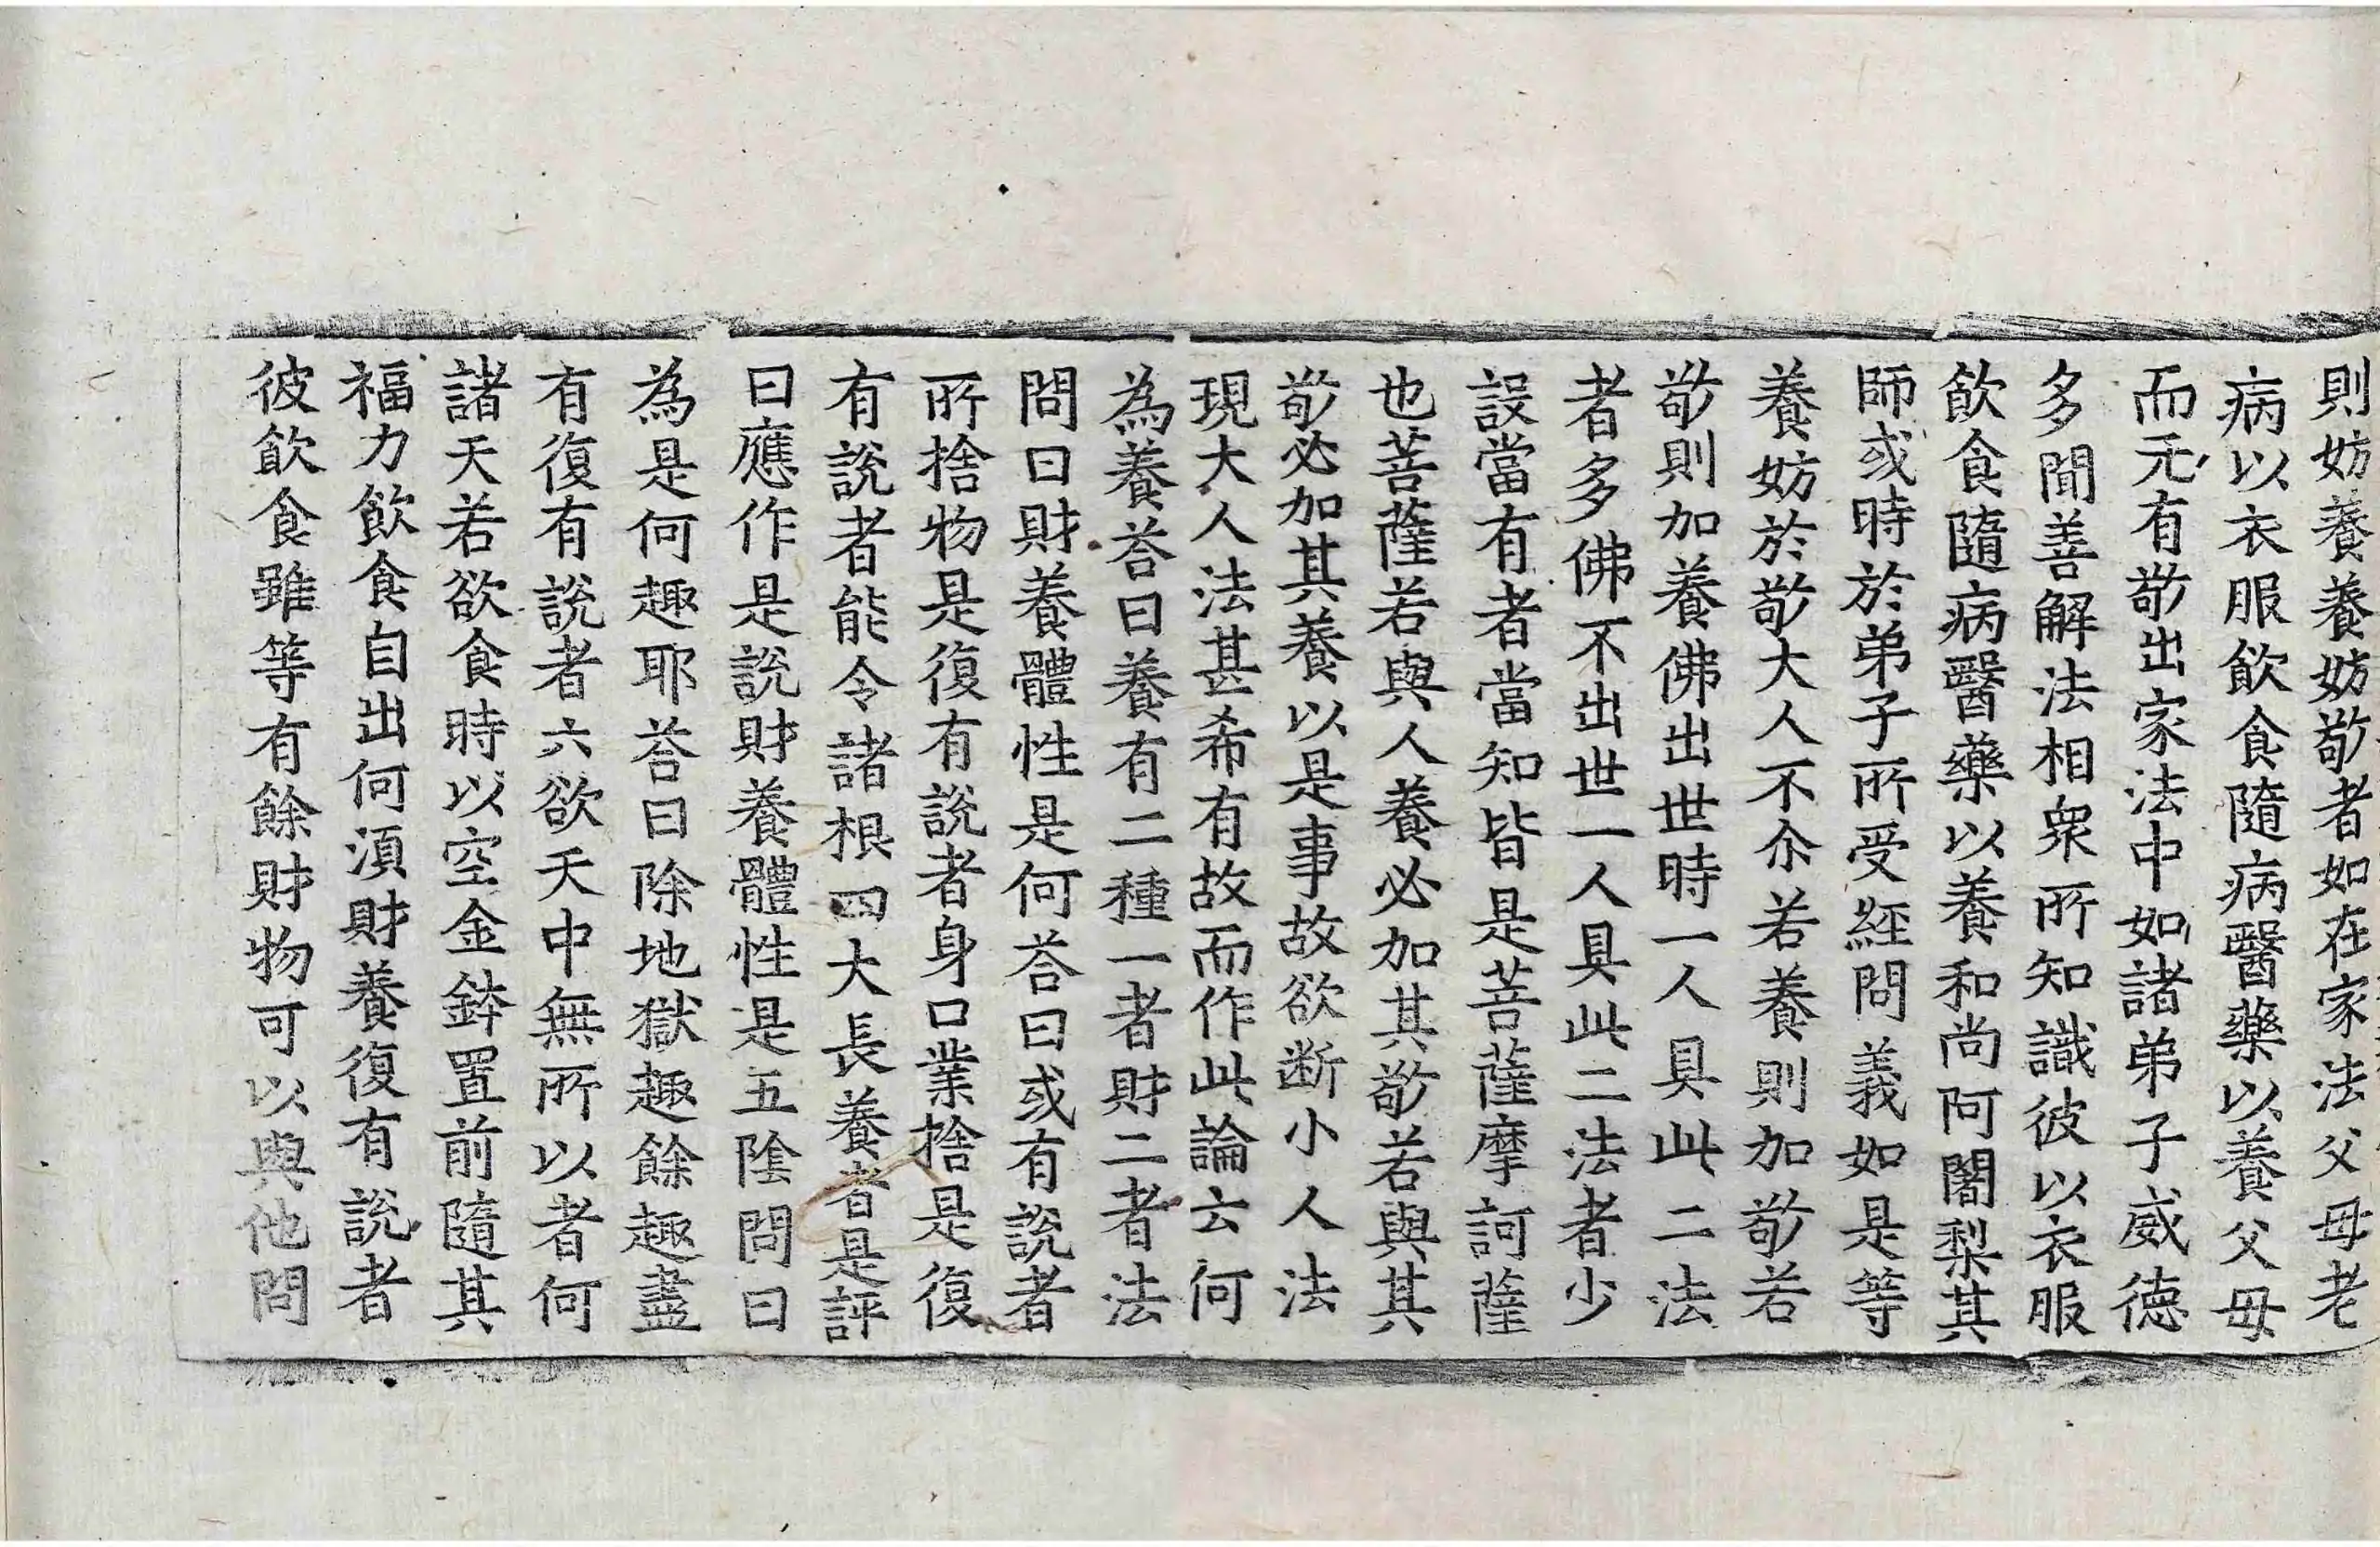 則妨養養妨敬者如在家法父母老
病以衣服飲食隨病醫藥以養父母
而无有敬出家法中如諸弟子威德
多聞善解法相衆所知識彼以衣服
飲食隨病醫藥以養和尚阿闍梨其
師或時於弟子所受經問義如是等
養妨於敬大人不尒若養則加敬若
敬則加養佛出世時一人具此二法
者多佛不出世一人具此二法者少
設當有者當知皆是菩薩摩訶薩
也菩薩若與人養必加其敬若與其
敬必加其養以是事故欲断小人法
現大人法甚希有故而作此論云何
為養荅曰養有二種一者財二者法
問曰財養體性是何荅曰或有說者
所捨物是復有說者身口業捨是復
有說者能令諸根四大長養者是評
曰應作是說財養體性是五陰問曰
為是何趣耶荅曰除地獄趣餘趣盡
有復有說者六欲天中無所以者何
諸天若欲食時以空金鉢置前隨其
福力飲食自出何湏財養復有說者
彼飲食雖等有餘財物可以與他問